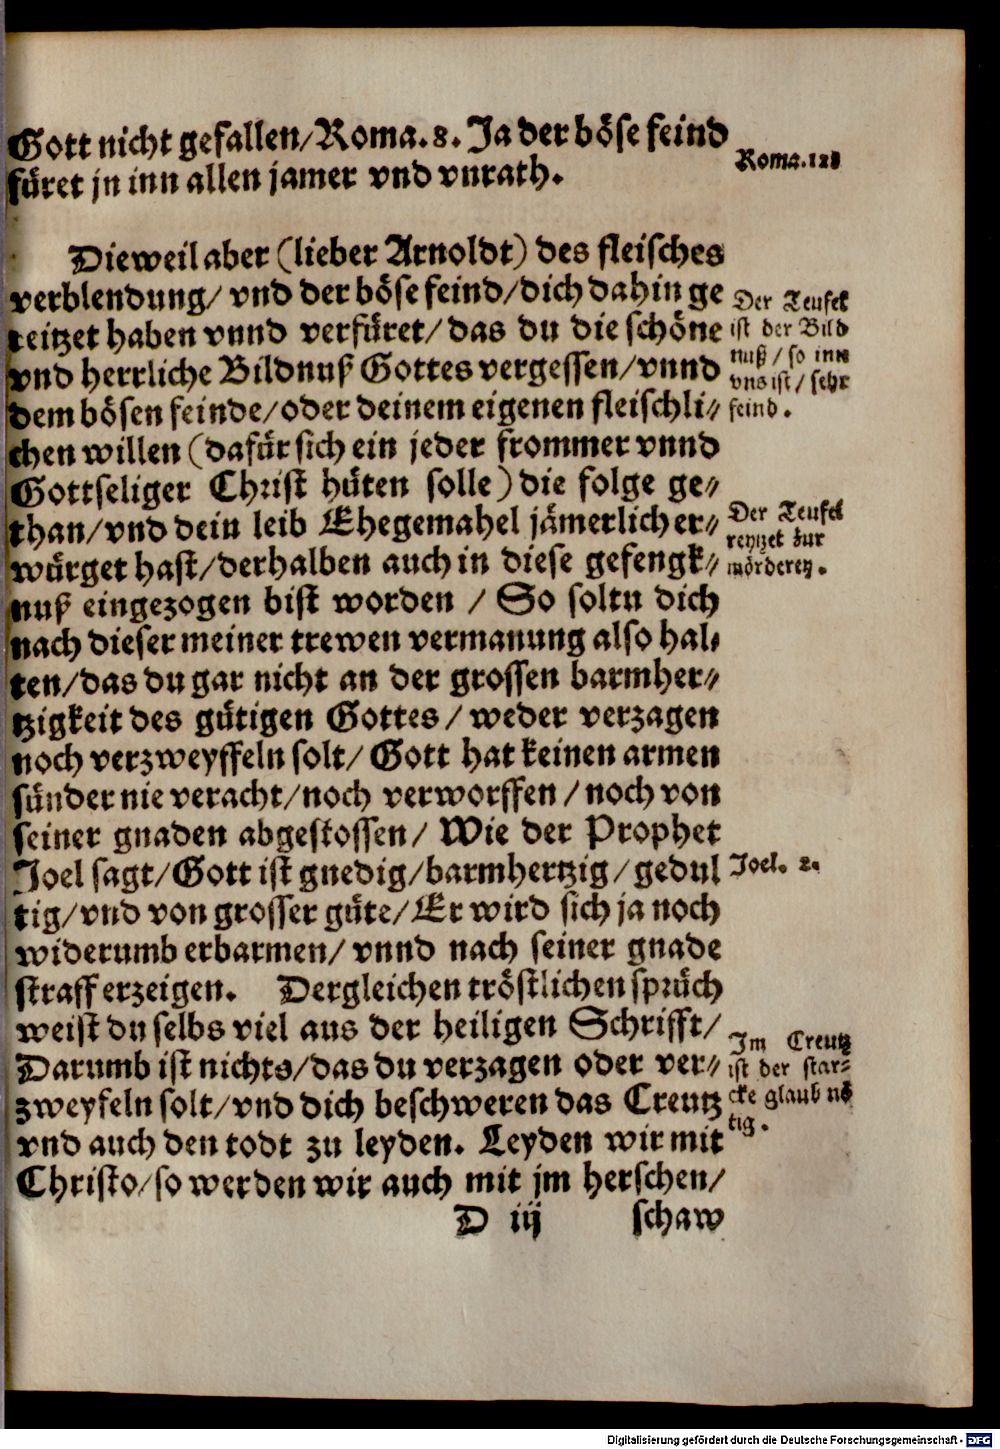 Gott nicht gefallen/Roma.8. Ja der böse feind
füret jn inn allen jamer vnd vnrath.
Roma.128
Dieweil aber (lieber Arnoldt) des fleisches
verblendung/ vnd der böse feind/dich dahin ge
reitzet haben vnnd verfüret/das du die schöne
vnd herrliche Bildnuß Gottes vergessen/vnnd
dem bösen feinde/oder deinem eigenen fleischli⸗
chen willen (dafür sich ein jeder frommer vnnd
Gottseliger Christ hüten solle) die folge ge⸗
than/vnd dein leib Ehegemahel jämerlich er⸗
würget hast/derhalben auch in diese gefengk⸗
nuß eingezogen bist worden / So soltu dich
nach dieser meiner trewen vermanung also hal⸗
ten/das du gar nicht an der grossen barmher⸗
tzigkeit des gütigen Gottes/ weder verzagen
noch verzweyffeln solt/ Gott hat keinen armen
sünder nie veracht/noch verworffen/noch von
seiner gnaden abgestossen/ Wie der Prophet
Joel sagt/Gott ist gnedig/barmhertzig/gedul
tig/vnd von grosser güte/Er wird sich ja noch
widerumb erbarmen/ vnnd nach seiner gnade
straff erzeigen. Dergleichen tröstlichen sprüch
weist du selbs viel aus der heiligen Schrifft/
Darumb ist nichts/das du verzagen oder ver⸗
zweyfeln solt/vnd dich beschweren das Creutz
vnd auch den todt zu leyden. Leyden wir mit
Christo/so werden wir auch mit jm herschen/
D iij schaw
Der Teufel
ist der Bild
nuß/ so inn
vns ist/ sehr
feind.
Der Teufel
reytzet zur
mörderey.
Joel. 2.
Im Creutz
ist der star⸗
cke glaub nö
tig.
Digitalisierung gefördert durch die Deutsche Forschungsgemeinschaft - DFG